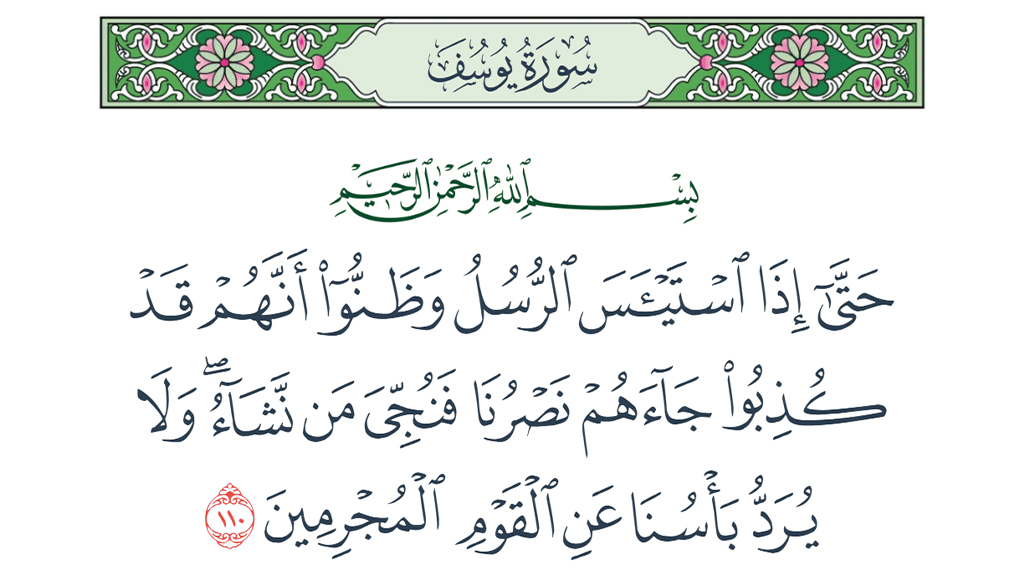 سُورَةُ يُوسُفَ
بِسْمِ ٱللَّهِ ٱلرَّحْمَٰنِ ٱلرَّحِيمِ
حَتَّىٰٓ إِذَا ٱسْتَيْـَٔسَ ٱلرُّسُلُ وَظَنُّوٓا۟ أَنَّهُمْ قَدْ
كُذِبُوا۟ جَآءَهُمْ نَصْرُنَا فَنُجِّىَ مَن نَّشَآءُ ۖ وَلَا
يُرَدُّ بَأْسُنَا عَنِ ٱلْقَوْمِ ٱلْمُجْرِمِينَ ١١٠